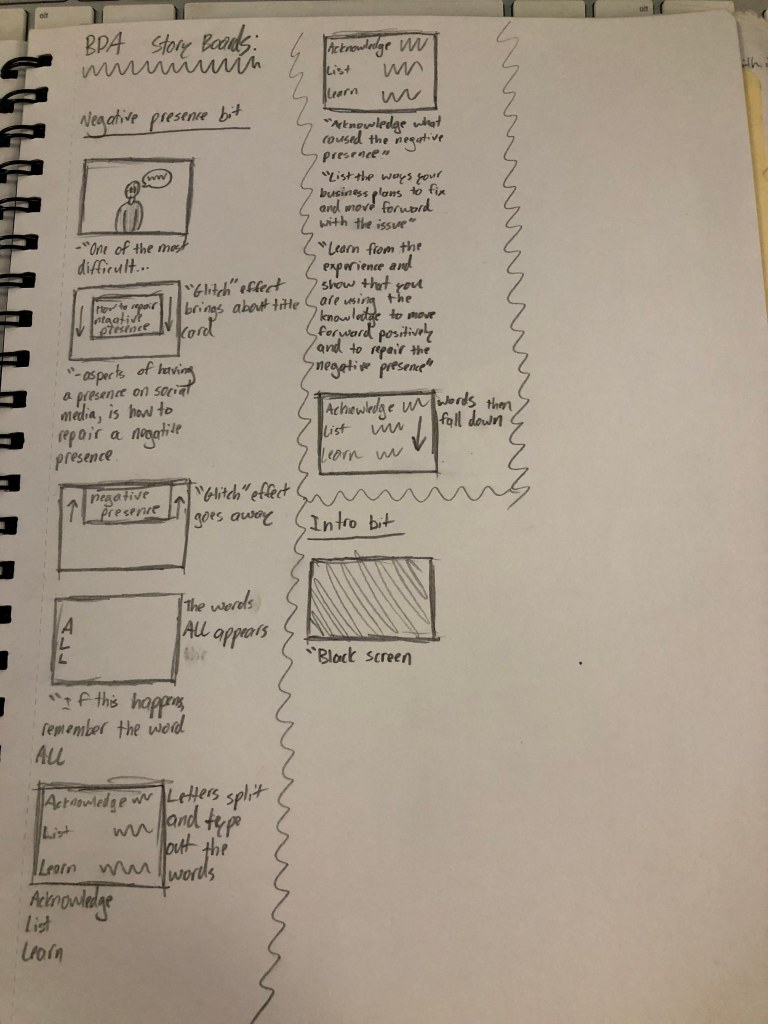 BDA Story Boards:
Negative presence bit
-"One of the most
difficult...
How to repair
negative
presence
"Glitch" effect
brings about title
card
"-aspects of having
a presence on social
media, is how to
repair a negative
presence
negative
presence
"Glitch" effect
goes away
A
L
L
The words
ALL appears
"If this happens,
remember the word
ALL
Acknowledge
List
Learn
Letters split
and type
out the
words
Acknowledge
List
Learn
Acknowledge
List
Learn
"Acknowledge what
caused the negative
presence"
"List the ways your
business plans to fix
and move forward
with the issue"
"Learn from the
experience and
show that you
are using the
knowledge to move
forward positively
and to repair the
negative presence"
Acknowledge
List
Learn
words then
fall down
Intro bit
"Black screen